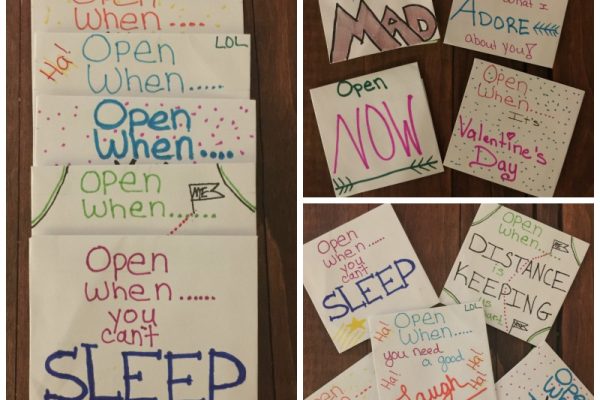 Open
When.....
Ha!
Open
When.....
LOL
Open
When....
Open
When......
ME
Open
When......
you
can't
SLEEP
MAD
what I
ADORE
about you!
Open
NOW
Open
When......
It's
Valentine's
Day
Open
When......
you
can't
SLEEP
Open
When......
DISTANCE
is
KEEPING
us
ME
Ha!
LOL
Open
When.....
you need
a good
Laugh
Ha!
Ha!
Ha!
Open
Open